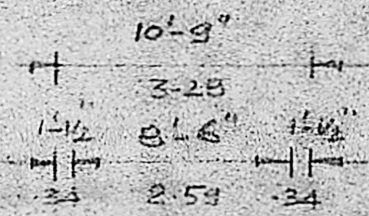 10'-9"
3-28
1'-1½" 8'-6" 1'-1½"
.34 2.59 .34